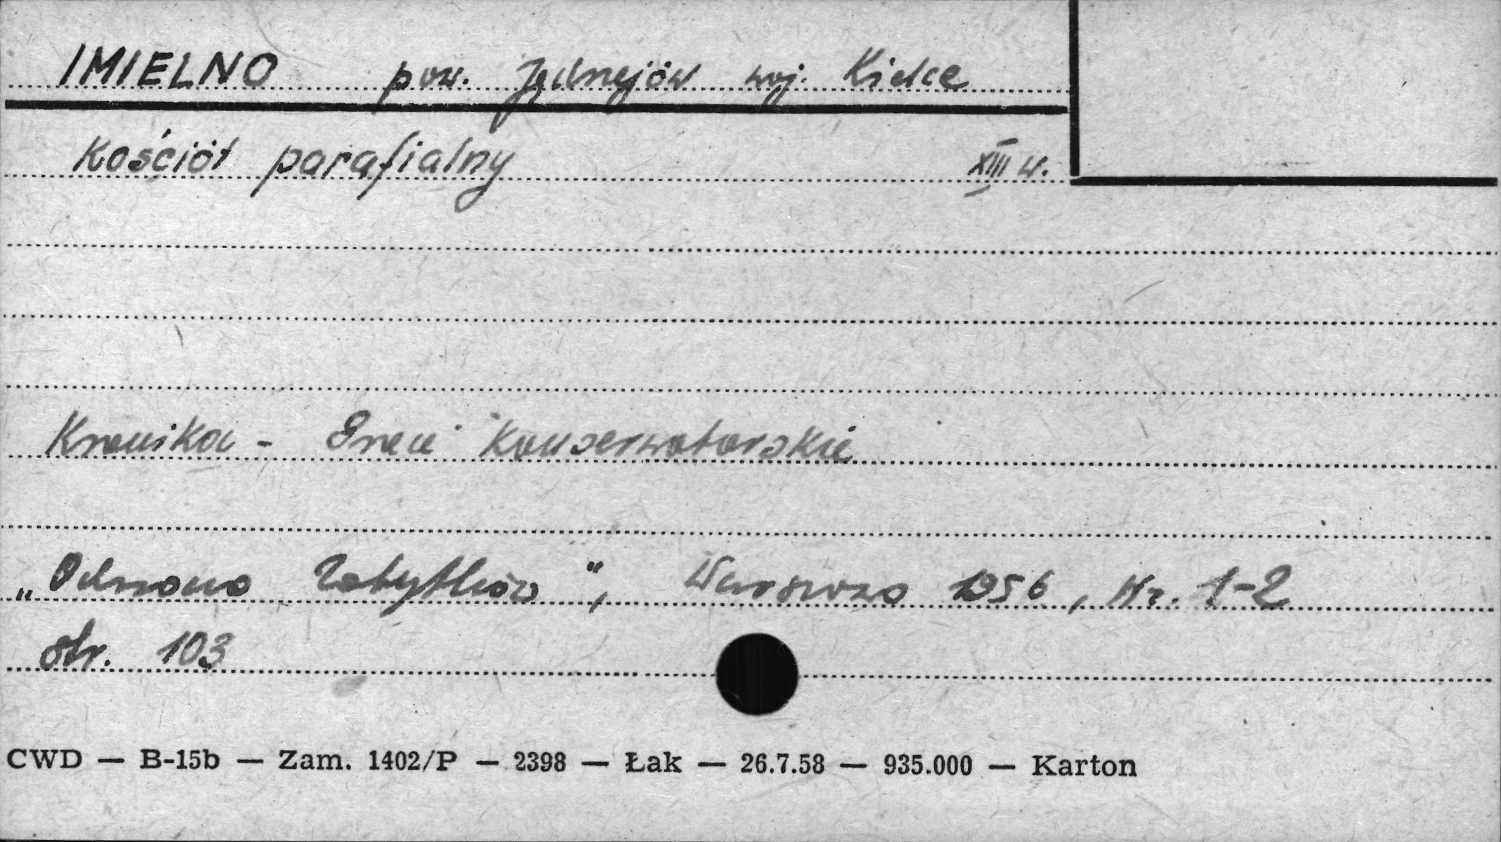 IMIELNO pow. Jędrzejów woj. Kielce
Kościół parafialny XIII w.
Kronika - Prace konserwatorskie
„Ochrona Zabytków”, Warszawa 1956, Nr. 1-2
str. 103
CWD — B-15b — Zam. 1402/P — 2398 — Łak — 26.7.58 — 935.000 — Karton